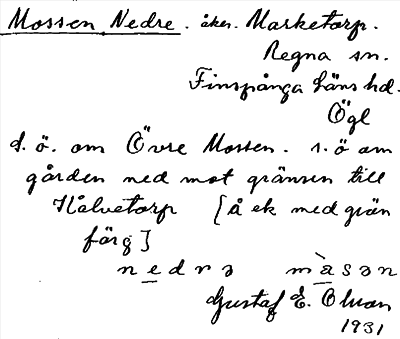 Mossen Nedre. åker. Marketorp.
Regna sn.
Finspånga läns hd.
Ögl
s. ö. om Övre Mossen. s. ö om
gården ned mot gränsen till
Hålvetorp [å ek med grön
färg]
nedrə màsən
Gustaf E. Olson
1931